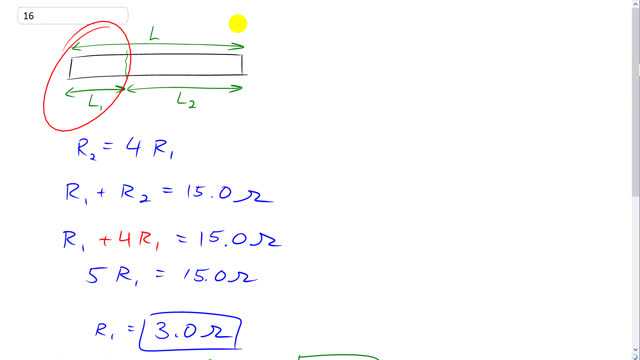 16
L
L₁ L₂
R₂ = 4 R₁
R₁ + R₂ = 15.0 Ω
R₁ + 4 R₁ = 15.0 Ω
5 R₁ = 15.0 Ω
R₁ = 3.0 Ω